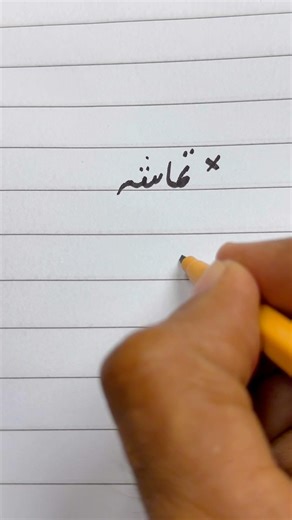 × تماشہ